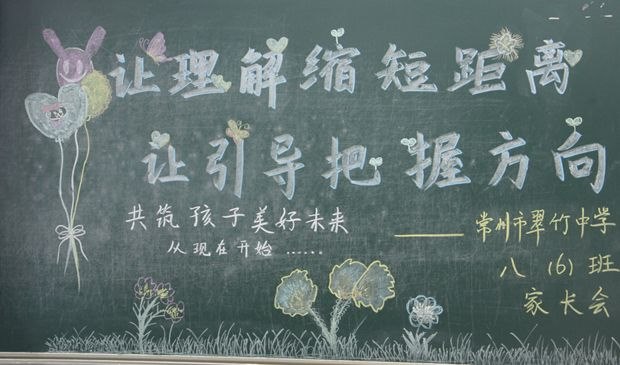 让理解缩短距离
让引导把握方向
共筑孩子美好未来
从现在开始……
——常州市翠竹中学
八(6)班
家长会